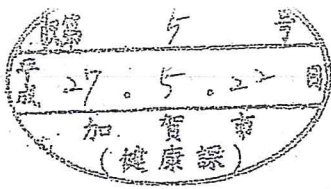 第 5 号
平成 27.5.22
加賀市
(健康課)